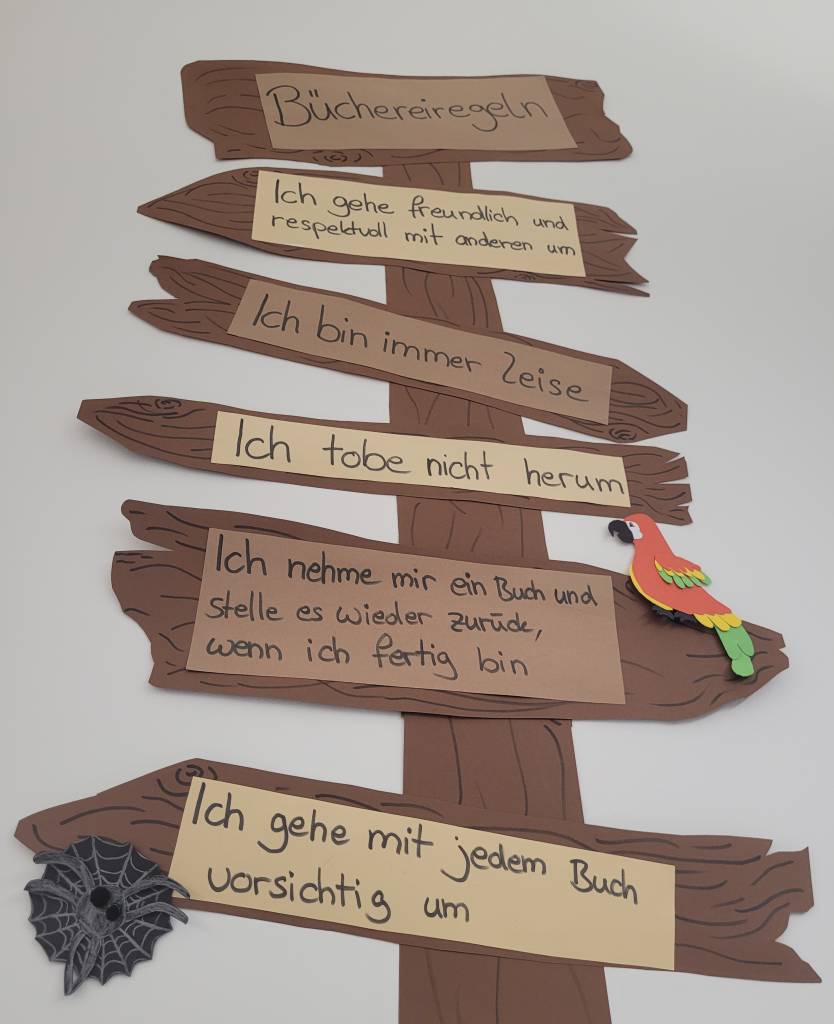 Büchereiregeln
Ich gehe freundlich und
respektvoll mit anderen um
Ich bin immer leise
Ich tobe nicht herum
Ich nehme mir ein Buch und
stelle es wieder zurück,
wenn ich fertig bin
Ich gehe mit jedem Buch
vorsichtig um